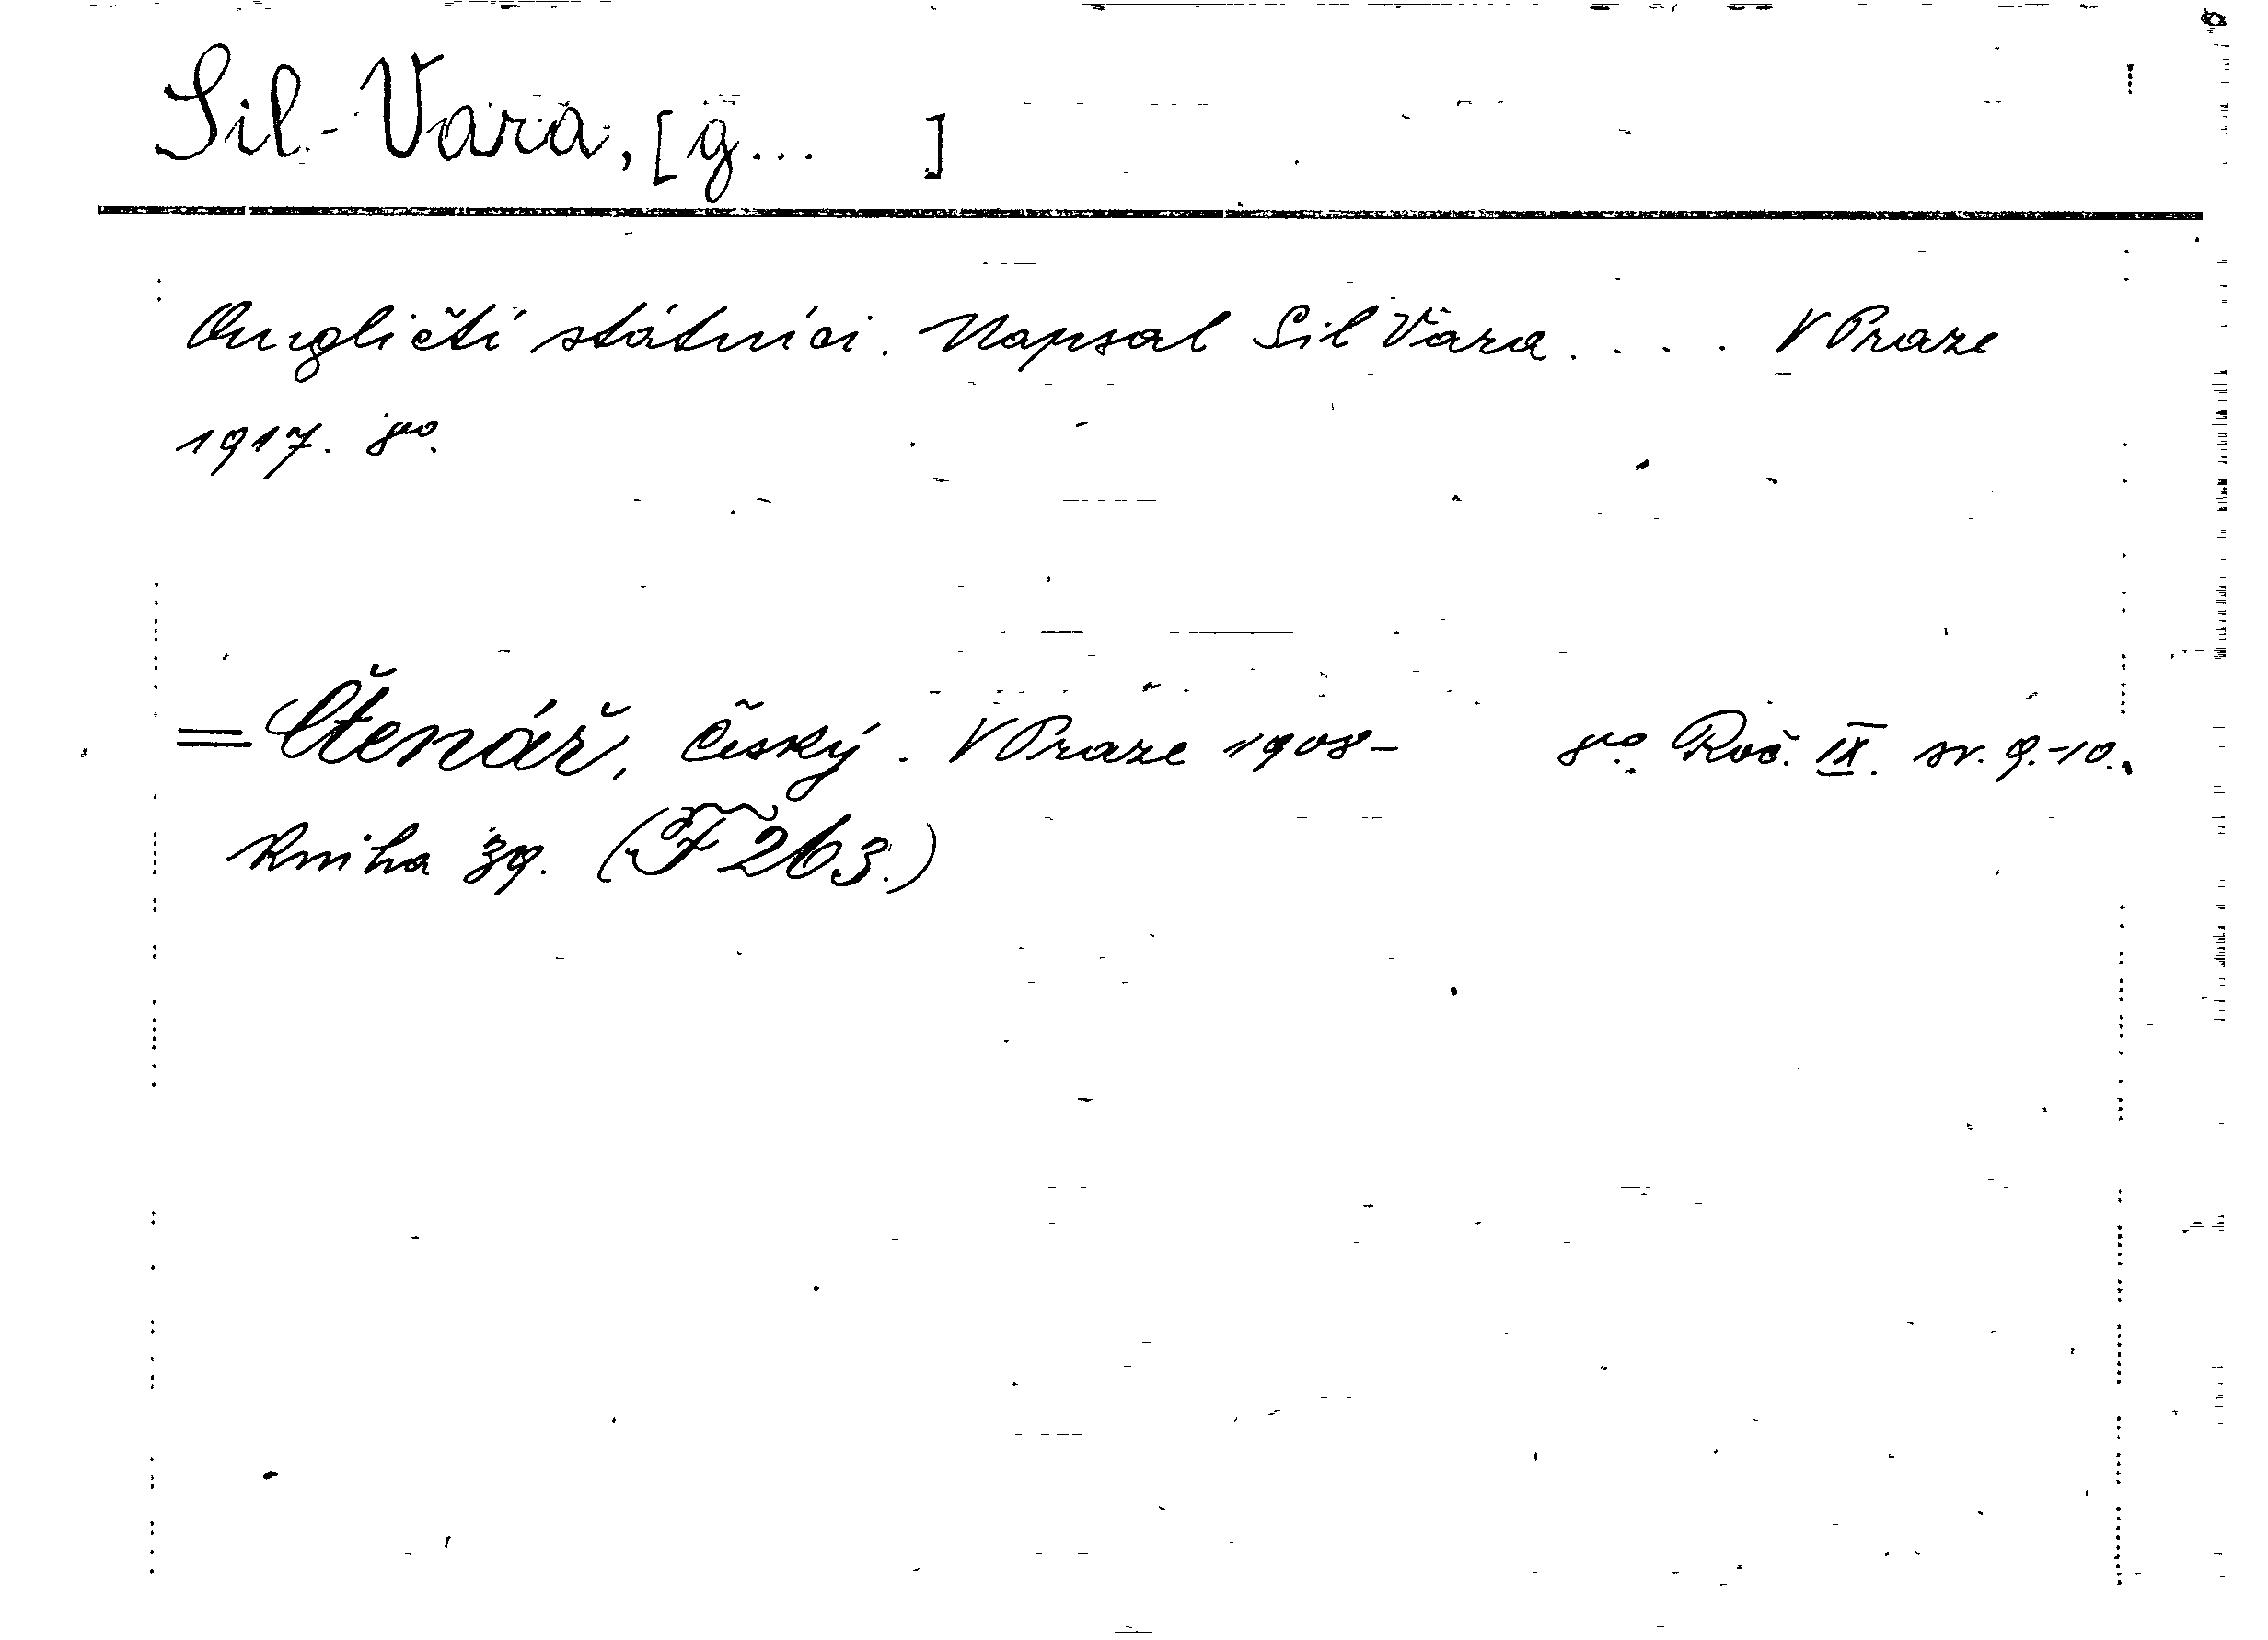 Sil-Vara, [g... ]
Angličtí státníci. Napsal Sil Vara. . . . V Praze
1917. 8vo.
= Čtenář, Český. V Praze 1908- 8vo. Roč. IX. sv. 9.-10.,
kniha 39. (F 263.)